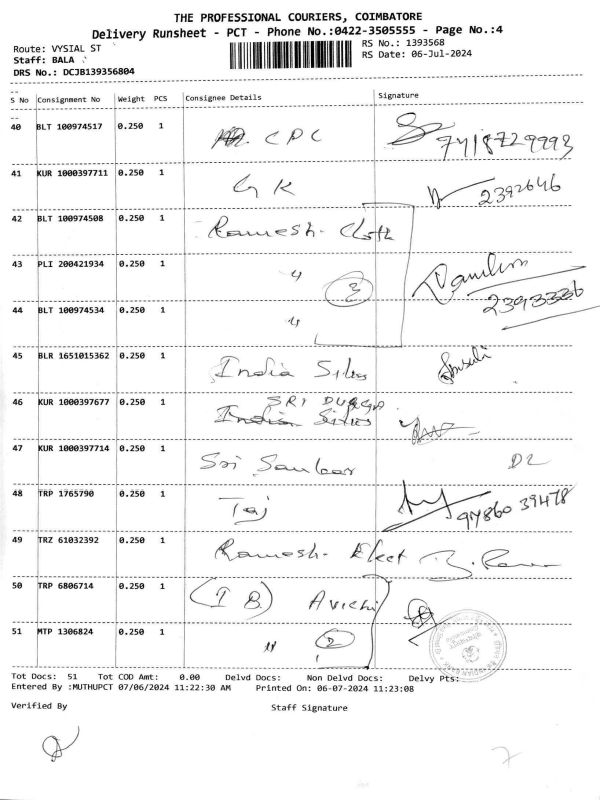 THE PROFESSIONAL COURIERS, COIMBATORE
Delivery Runsheet - PCT - Phone No.:0422-3505555 - Page No.:4
Route: VYSIAL ST
RS No.: 1393568
Staff: BALA
RS Date: 06-Jul-2024
DRS No.: DCJB139356804
S No Consignment No Weight PCS Consignee Details Signature
40 BLT 100974517 0.250 1 CPC 7418729993
41 KUR 1000397711 0.250 1 G K 2392646
42 BLT 100974508 0.250 1 Ramesh Cloth
43 PLI 200421934 0.250 1 " 3 2393336
44 BLT 100974534 0.250 1 "
45 BLR 1651015362 0.250 1 India Silks
46 KUR 1000397677 0.250 1 SRI DURGA
47 KUR 1000397714 0.250 1 Sri Sankar D2
48 TRP 1765790 0.250 1 Taj 97860 39478
49 TRZ 61032392 0.250 1 Ramesh Elect
50 TRP 6806714 0.250 1 (I B) Avichi
51 MTP 1306824 0.250 1 " 2
Tot Docs: 51 Tot COD Amt: 0.00 Delvd Docs: Non Delvd Docs: Delvy Pts:
Entered By :MUTHUPCT 07/06/2024 11:22:30 AM Printed On: 06-07-2024 11:23:08
Verified By Staff Signature
7